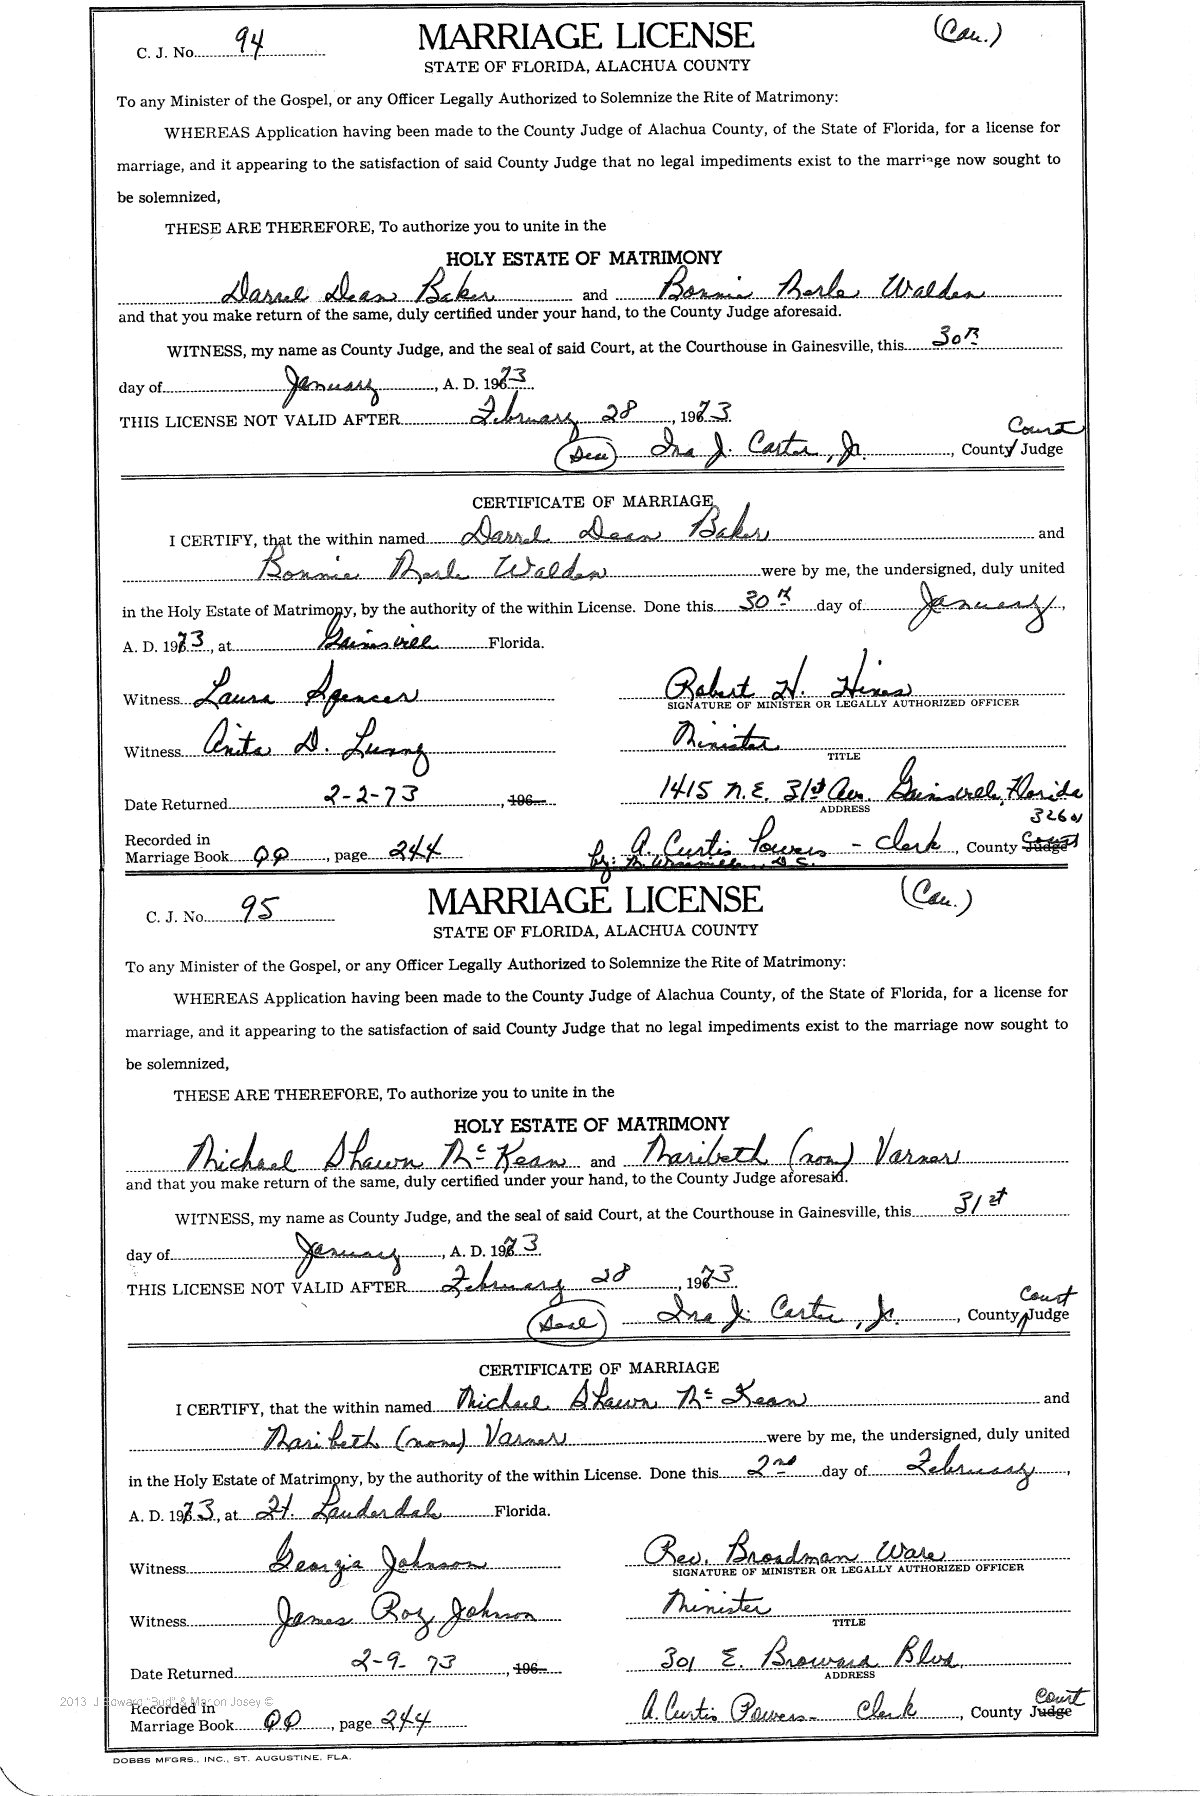 C. J. No. 94 MARRIAGE LICENSE (Cau.)
STATE OF FLORIDA, ALACHUA COUNTY
To any Minister of the Gospel, or any Officer Legally Authorized to Solemnize the Rite of Matrimony:
WHEREAS Application having been made to the County Judge of Alachua County, of the State of Florida, for a license for
marriage, and it appearing to the satisfaction of said County Judge that no legal impediments exist to the marriage now sought to
be solemnized,
THESE ARE THEREFORE, To authorize you to unite in the
HOLY ESTATE OF MATRIMONY
Darrel Dean Baker and Bonnie Merle Walden
and that you make return of the same, duly certified under your hand, to the County Judge aforesaid.
WITNESS, my name as County Judge, and the seal of said Court, at the Courthouse in Gainesville, this 30th
day of January, A. D. 1973
THIS LICENSE NOT VALID AFTER February 28, 1973
(Seal) Ira J. Carter, Jr., County Court Judge
CERTIFICATE OF MARRIAGE
I CERTIFY, that the within named Darrel Dean Baker and
Bonnie Merle Walden were by me, the undersigned, duly united
in the Holy Estate of Matrimony, by the authority of the within License. Done this 30th day of January,
A. D. 1973, at Gainesville Florida.
Witness Laura Spencer Robert H. Hines
SIGNATURE OF MINISTER OR LEGALLY AUTHORIZED OFFICER
Witness Anita D. Minister
TITLE
Date Returned 2-2-73, 196 1415 N.E. 31st Ave. Gainesville, Florida
ADDRESS 32601
Recorded in
Marriage Book QQ, page 244 A. Curtis Powers - Clerk, County Court Judge
by: D.C.
C. J. No. 95 MARRIAGE LICENSE (Cau.)
STATE OF FLORIDA, ALACHUA COUNTY
To any Minister of the Gospel, or any Officer Legally Authorized to Solemnize the Rite of Matrimony:
WHEREAS Application having been made to the County Judge of Alachua County, of the State of Florida, for a license for
marriage, and it appearing to the satisfaction of said County Judge that no legal impediments exist to the marriage now sought to
be solemnized,
THESE ARE THEREFORE, To authorize you to unite in the
HOLY ESTATE OF MATRIMONY
Michael Shawn McKean and Maribeth (non) Varner
and that you make return of the same, duly certified under your hand, to the County Judge aforesaid.
WITNESS, my name as County Judge, and the seal of said Court, at the Courthouse in Gainesville, this 31st
day of January, A. D. 1973
THIS LICENSE NOT VALID AFTER February 28, 1973
(Seal) Ira J. Carter, Jr., County Court Judge
CERTIFICATE OF MARRIAGE
I CERTIFY, that the within named Michael Shawn McKean and
Maribeth (none) Varner were by me, the undersigned, duly united
in the Holy Estate of Matrimony, by the authority of the within License. Done this 2nd day of February,
A. D. 1973, at Ft. Lauderdale Florida.
Witness Georgia Johnson Rev. Broadman Ware
SIGNATURE OF MINISTER OR LEGALLY AUTHORIZED OFFICER
Witness James Roy Johnson Minister
TITLE
Date Returned 2-9-73, 196 301 E. Broward Blvd.
ADDRESS
2013 J Edward "Bud" & Macon Josey ©
Recorded in
Marriage Book QQ, page 244 A. Curtis Powers - Clerk, County Court Judge
DOBBS MFGRS., INC., ST. AUGUSTINE, FLA.